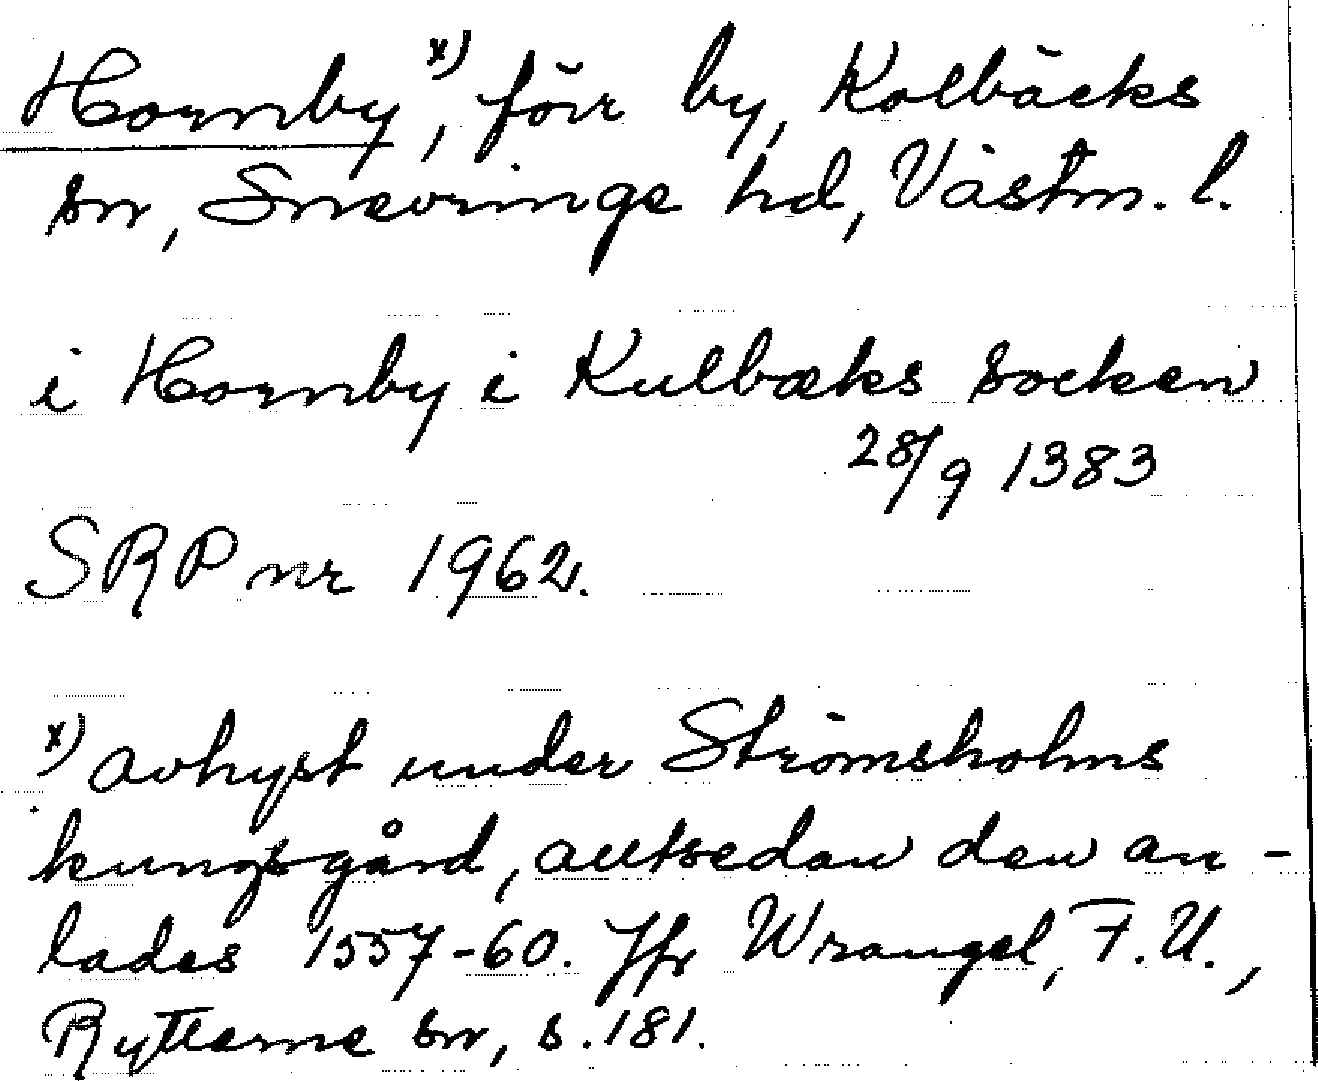 Hornby x), förr by, Kolbäcks
sn, Snevringe hd, Västm. l.
i Hornby i Kulbæks socken
28/9 1383
SRP nr 1962.
x) avhyst under Strömsholms
kungsgård, alltsedan den an-
lades 1557-60. Jfr Wrangel, F.U.,
Rytterne sn, s. 181.